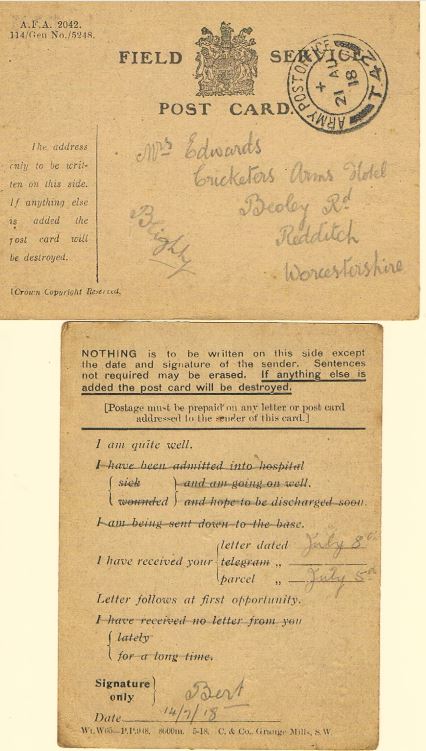 A.F.A. 2042.
114/Gen No./5248.
FIELD SERVICE
POST CARD.
ARMY POST OFFICE
21
18
T.42
The address
only to be writ-
ten on this side.
If anything else
is added the
post card will
be destroyed.
[Crown Copyright Reserved.
Mrs Edwards
Cricketers Arms Hotel
Beoley Rd
Redditch
Worcestershire
Blighty
NOTHING is to be written on this side except
the date and signature of the sender. Sentences
not required may be erased. If anything else is
added the post card will be destroyed.
[Postage must be prepaid on any letter or post card
addressed to the sender of this card.]
I am quite well.
I have been admitted into hospital
sick and am going on well.
wounded and hope to be discharged soon.
I am being sent down to the base.
letter dated July 8th
I have received your telegram „
parcel „ July 5th
Letter follows at first opportunity.
I have received no letter from you
lately
for a long time.
Signature
only
Bert
Date 14/7/18
5-18. C. & Co. Grange Mills, S.W.